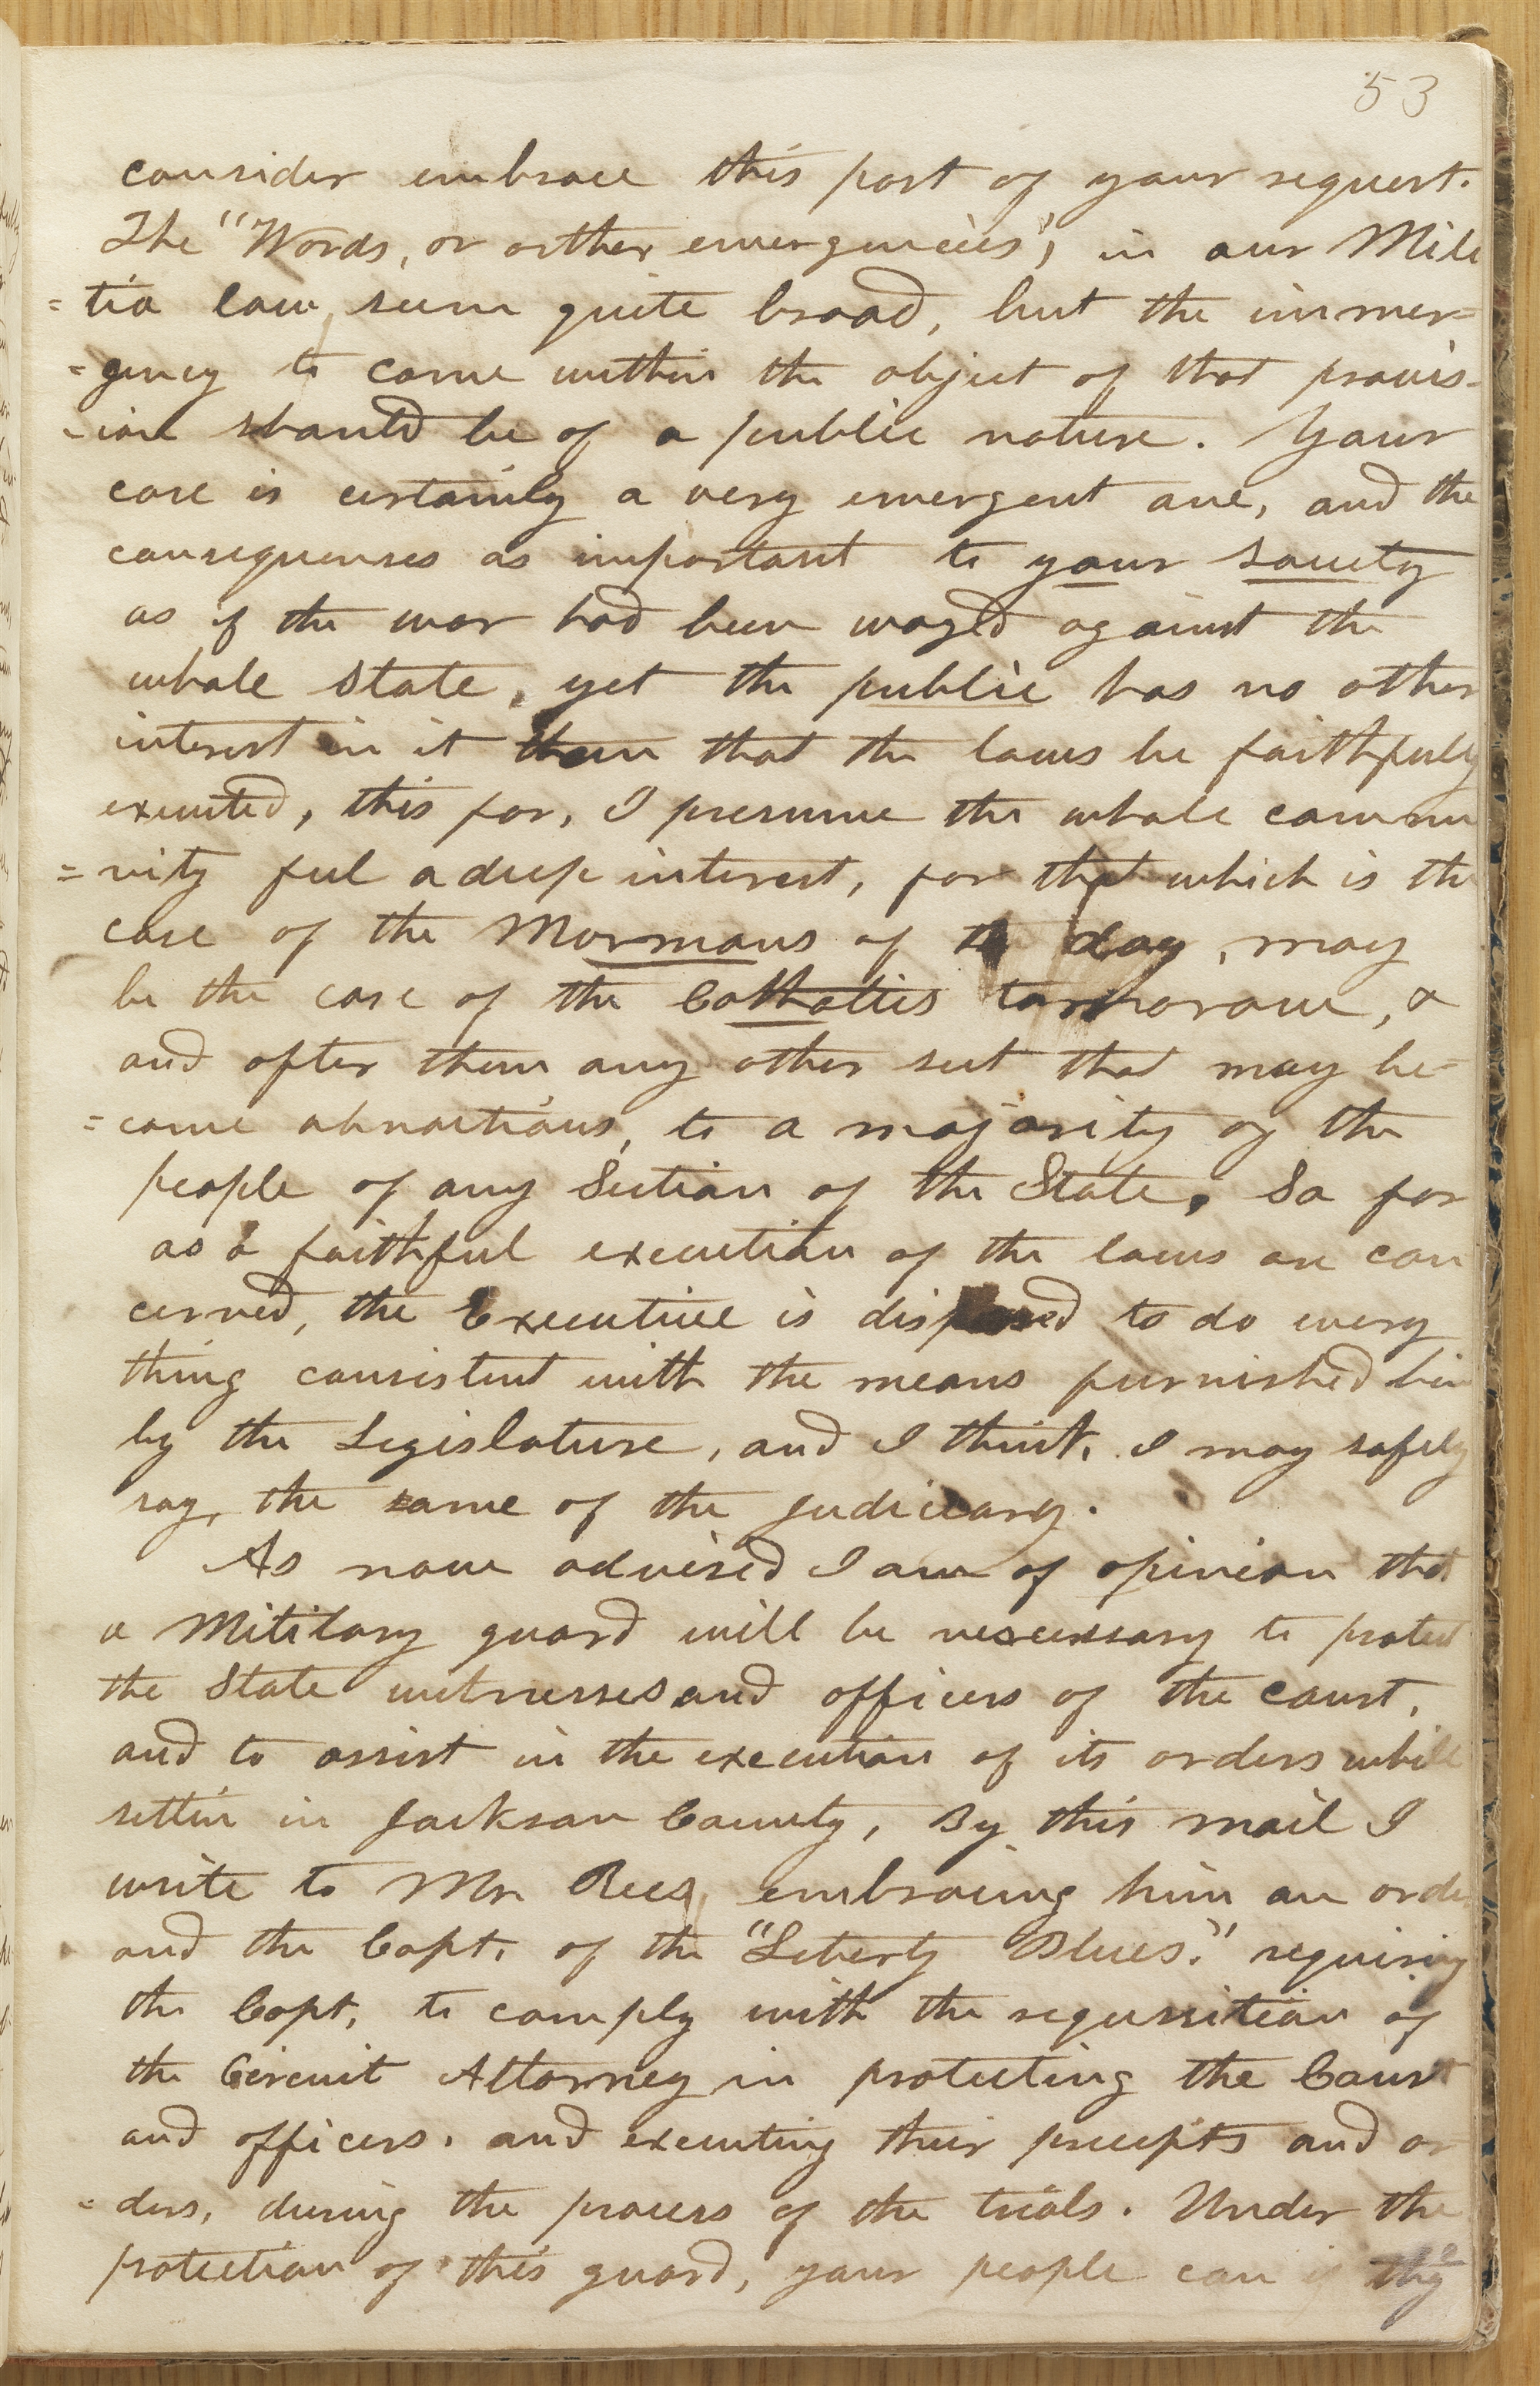 53
consider embrace this part of your request.
The "Words, or orther emergencies", in our Mili
=tia law, seem quite broad, but the immer=
=gency to come within the object of that provis-
-ion should be of a public nature. Your
case is certainly a very emergent one, and the
consequenses as important to your society
as if the war had been waged against the
whole State, yet the public has no other
interest in it than that the laws be faithfully
executed, this far, I presume the whole commu
=nity feel a deep interest, for that which is the
case of the Mormons of to day, may
be the case of the Cathalics tormorow, &
and after them any other sect that may be-
=come obnoctious, to a majority of the
people of any Section of the State, So far
as a faithful execution of the laws are con
cerned, the Executive is disposed to do every
thing consistent with the means furnished him
by the Legislature, and I think, I may safely
say, the same of the judiciary.
As now advised I am of opinion that
a Mititary guard will be nescessary to protect
the State witnesses and officers of the court,
and to assist in the execution of its orders while
settin in Jackson County, By this mail I
write to Mr Rees, embracing him an order
and the Capt. of the "Leberty Blues." requiring
the Capt, to comply with the requisition of
the Circuit Attorney in protecting the Court
and officers. and executing their precepts and or
=ders, during the process of the trials. Under the
protection of this guard, your people can if they